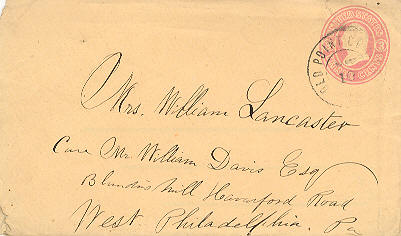 UNITED STATES
OLD POINT
THREE CENTS
Mrs. William Lancaster
Care Mr. William Davis Esq
Blandins Mill Haverford Road
West Philadelphia. Pa